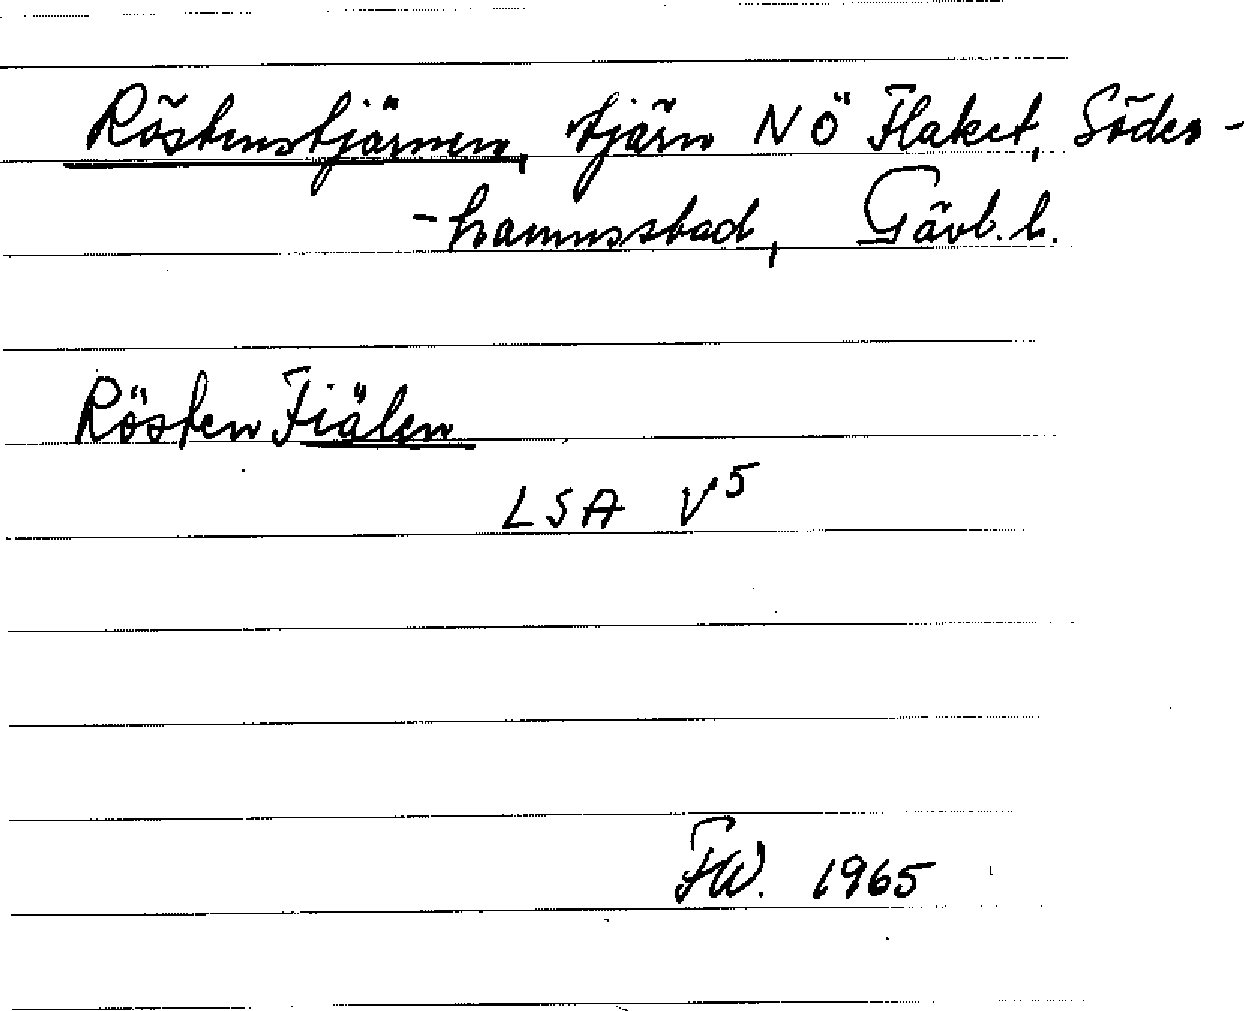 Röstenstjärnen, tjärn NÖ Flaket, Söder-
-hamnsstad, Gävl. l.
Rösten Fiälen
LSA V5
FW. 1965